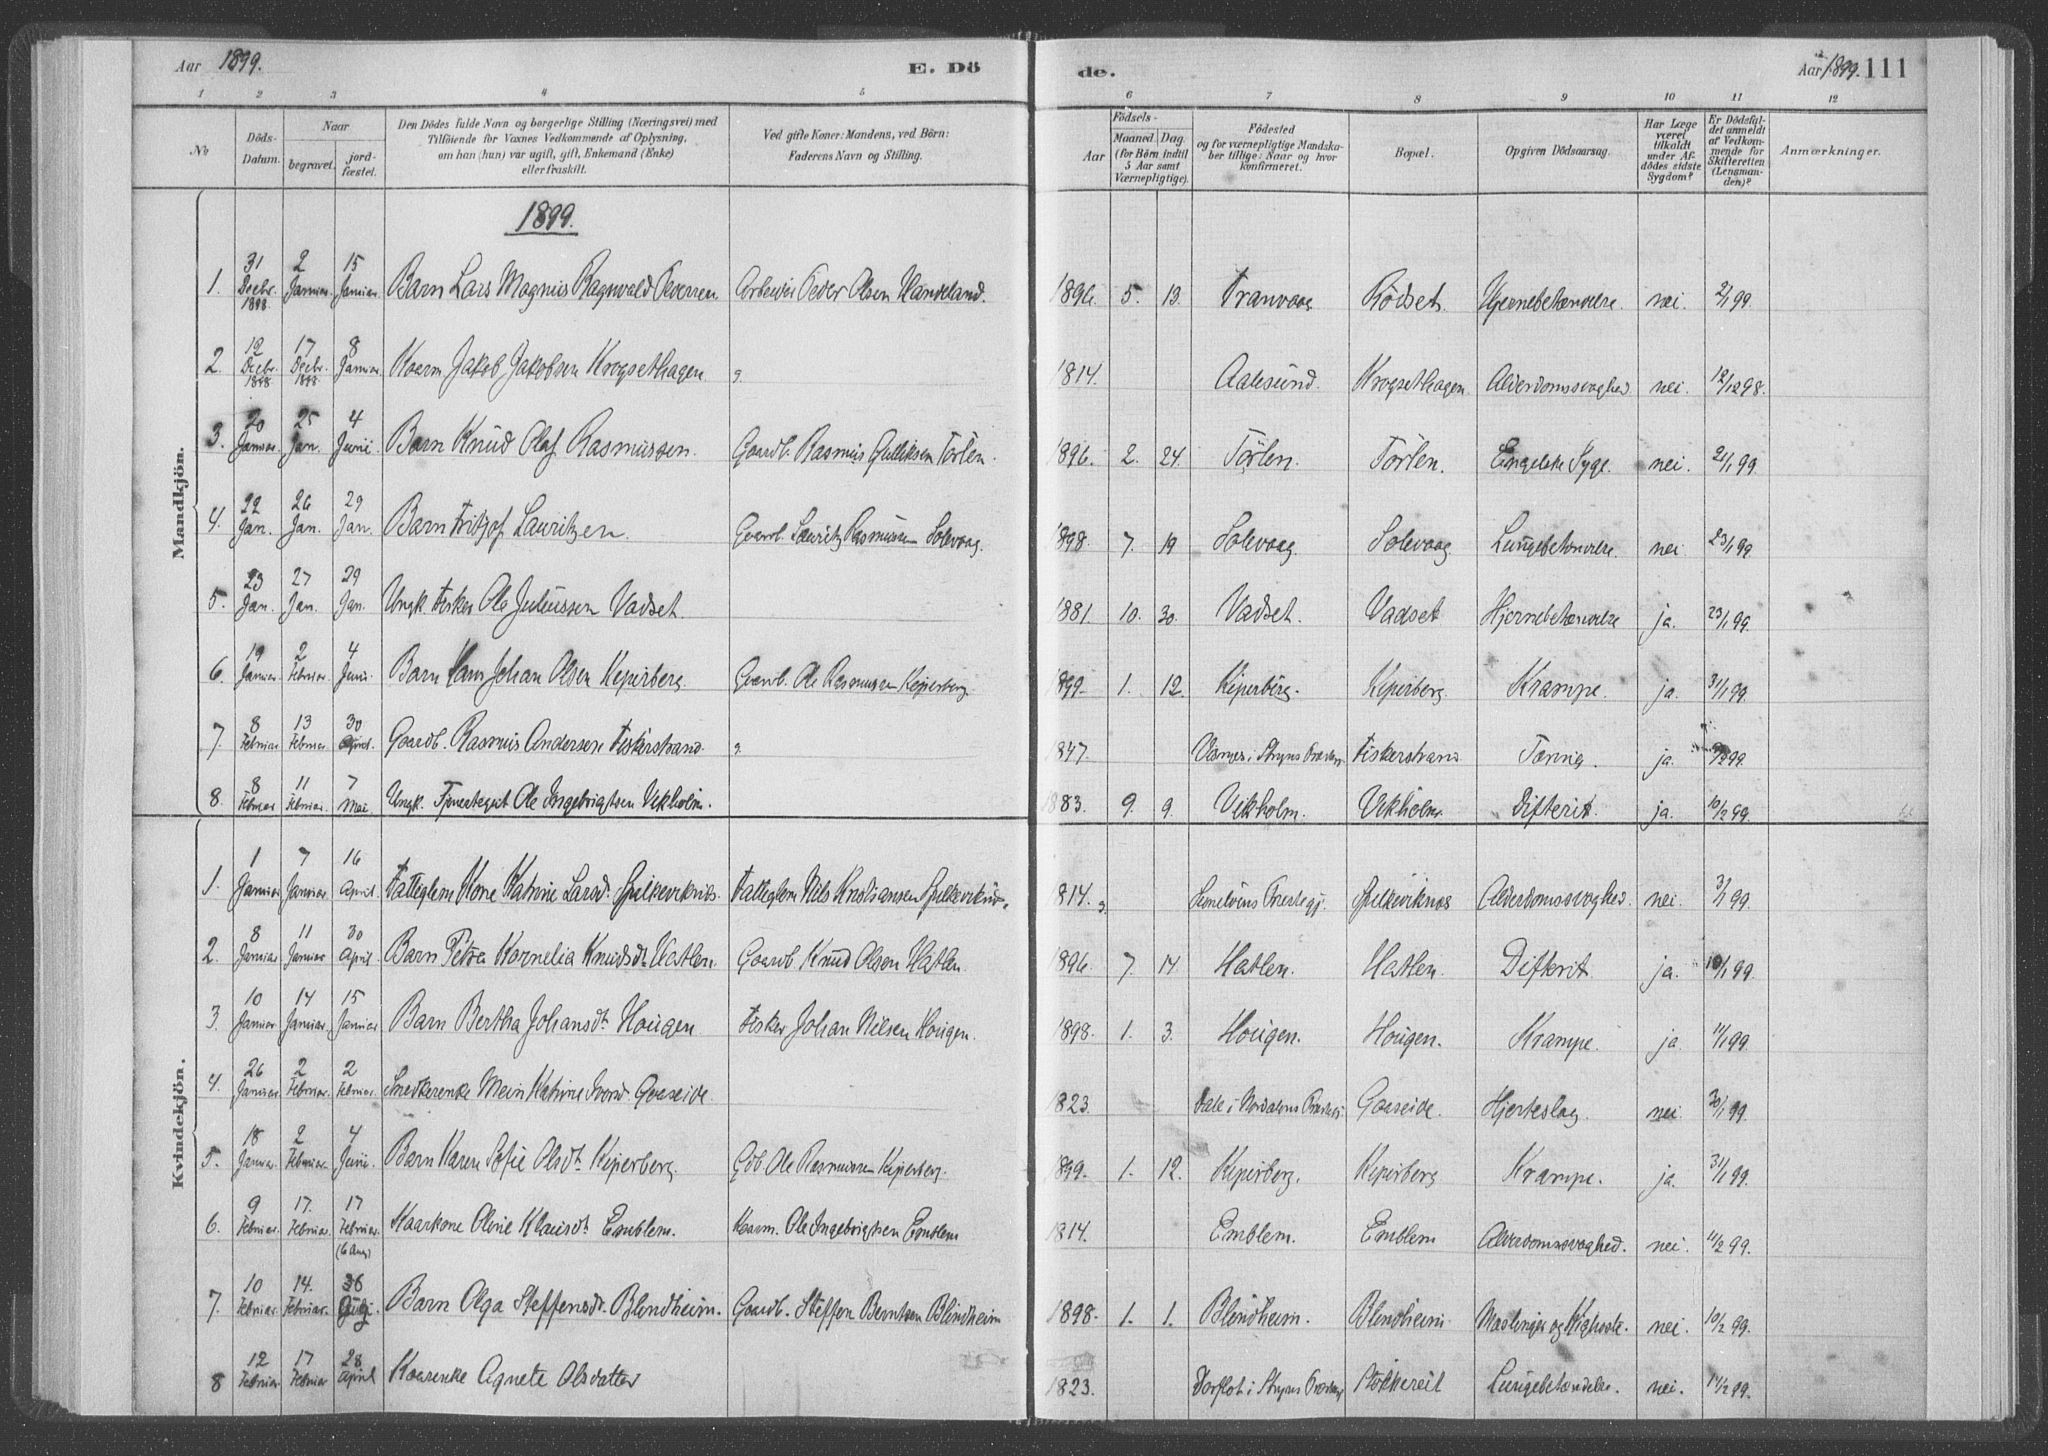 Aar 1899. E. Dö de. Aar 1899. 111
1 2 3 4 5 6 7 8 9 10 11 12
No
Döds-Datum.
Naar
begravet.
jord-fæstet.
Den Dödes fulde Navn og borgerlige Stilling (Næringsvei) med
Tilföiende for Vaxnes Vedkommende af Oplysning,
om han (hun) var ugift, gift, Enkemand (Enke)
eller fraskilt.
Ved gifte Koner: Mandens, ved Börn:
Faderens Navn og Stilling.
Födsels-
Aar
Maaned. Dag.
(for Börn indtil
5 Aar samt
Værnepligtige).
Födested
og for værnepligtige Mandska-
ber tillige: Naar og hvor
konfirmeret.
Bopæl.
Opgiven Dödsaarsag.
Har Læge
været
tilkaldt
under Af-
dödes sidste
Sygdom?
Er Dödsfal-
det anmeldt
af Vedkom-
mende for
Skifteretten
(Lensman-
den)?
Anmærkninger.
1899.
Mandkjön.
1. 31 Decbr. 1898 2 Januar. 15 Januar. Barn Lars Magnus Ragnvald Arbeider Peder Olsen 1896. 5. 13. Tranvaag Rödset. Hjernebetændelse. nei. 2/1 99.
2. 12 Decbr. 1898 17 Decbr. 1898 8 Januar. Kaarm. Jakob Jakobsen Krogsethagen. 1814. Aalesund. Krogsethagen. Alderdomssvaghed nei. 12/12 98.
3. 20 Januar. 25 Jan. 4 Juni. Barn Knud Olaf Rasmussen. Gaardb. Rasmus Gulliksen Törlen. 1896. 2. 24. Törlen. Törlen. Engelske Syge. nei. 21/1 99
4. 22 Jan. 26 Jan. 29 Jan. Barn Fritjof Lauritzen. Gaardb. Lauritz Rasmussen Solevaag. 1898. 7. 19 Solevaag Solevaag Lungebetændelse nei 23/1 99
5. 23 Jan. 27 Jan. 29 Jan. Ungk. Fisker Ole Juliussen Vadset. 1881. 10. 30. Vadset. Vadset Hjernebetændelse ja. 23/1 99.
6. 19 Januar. 2 Februar. 4 Juni. Barn Hans Johan Olsen Kiperberg. Gaardb. Ole Rasmussen Kiperberg 1899. 1. 12. Kiperberg. Kiperberg. Krampe. ja. 31/1 99.
7. 8 Februar 13 Februar 30 April. Gaardb. Rasmus Andersen Fiskerstrand. 1847. Fiskerstrand Tæring. ja. 99.
8. 8 Februar 11 Februar. 7 Mai Ungk. Tjenestegut Ole Ingebrigtsen Vikholm. 1883. 9. 9. Vikholm. Vikholm. Difterit. ja. 10/2 99.
Kvindekjön.
1. 1 Januar 7 Januar 16 April. Fattiglem Kone Katrine Larsd. Spilkeviknes. Fattiglem Nils Kristiansen Spilkeviknes. 1814. Præstegj. Spilkeviknes Alderdomssvaghed. nei. 3/1 99.
2. 8 Januar 11 Januar 30 April. Barn Petra Kornelia Knudsdt. Hatlen. Gaardb. Knud Olsen Hatlen. 1896. 7. 14. Hatlen. Hatlen. Difterit. ja. 10/1 99.
3. 10 Januar 14 Januar. 15 Januar Barn Bertha Johansdt. Hougen. Fisker Johan Nilsen Hougen. 1898. 1. 3. Hougen. Hougen. Krampe. ja. 11/1 99.
4. 26 Januar 2 Februar. 2 Februar. Snedkerenke Katrine Gaaseide 1823. Dale i Norddalens Præstegj. Gaaseide. Hjerteslag. nei 30/1 99.
5. 18 Januar. 2 Februar. 4 Juni. Barn Karen Sofie Olsdt. Kiperberg. Gdb. Ole Rasmussen Kiperberg. 1899. 1. 12. Kiperberg. Kiperberg Krampe. ja. 31/1 99.
6. 9 Februar. 17. Februar. 17 Februar. Kaarkone Oline Klausdt. Emblem. Kaarm. Ole Ingebrigtsen Emblem 1814. Emblem. Emblem Alderdomssvaghed. nei. 11/2 99.
7. 10 Februar. 14. Februar. Barn Olga Steffensdt. Blindheim. Gaardb. Steffen Berntsen Blindheim 1898. 1. 1. Blindheim. Blindheim Meslinger og Kighoste. nei. 10/2 99.
8 12 Februar 17 Februar 28 April Kaarenke Agnete Olsdatter 1823. Lungebetændelse. nei. 14/2 99.